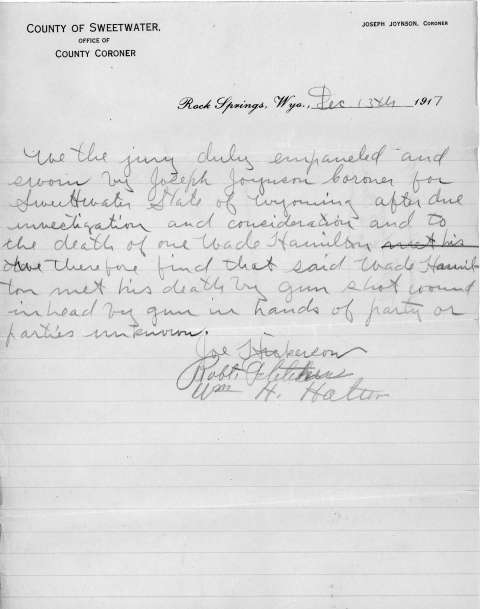 COUNTY OF SWEETWATER,
OFFICE OF
COUNTY CORONER
JOSEPH JOYNSON, CORONER
Rock Springs, Wyo., Dec 13th 1917
We the jury duly empaneled and
sworn by Joseph Joynson Coroner for
Sweetwater State of Wyoming after due
investigation and consideration and to
the death of one Wade Hamilton met his
therefore find that said Wade Hamil-
ton met his death by gun shot wound
in head by gun in hands of party or
parties unknown.
Joe
Robt.
Wm H.